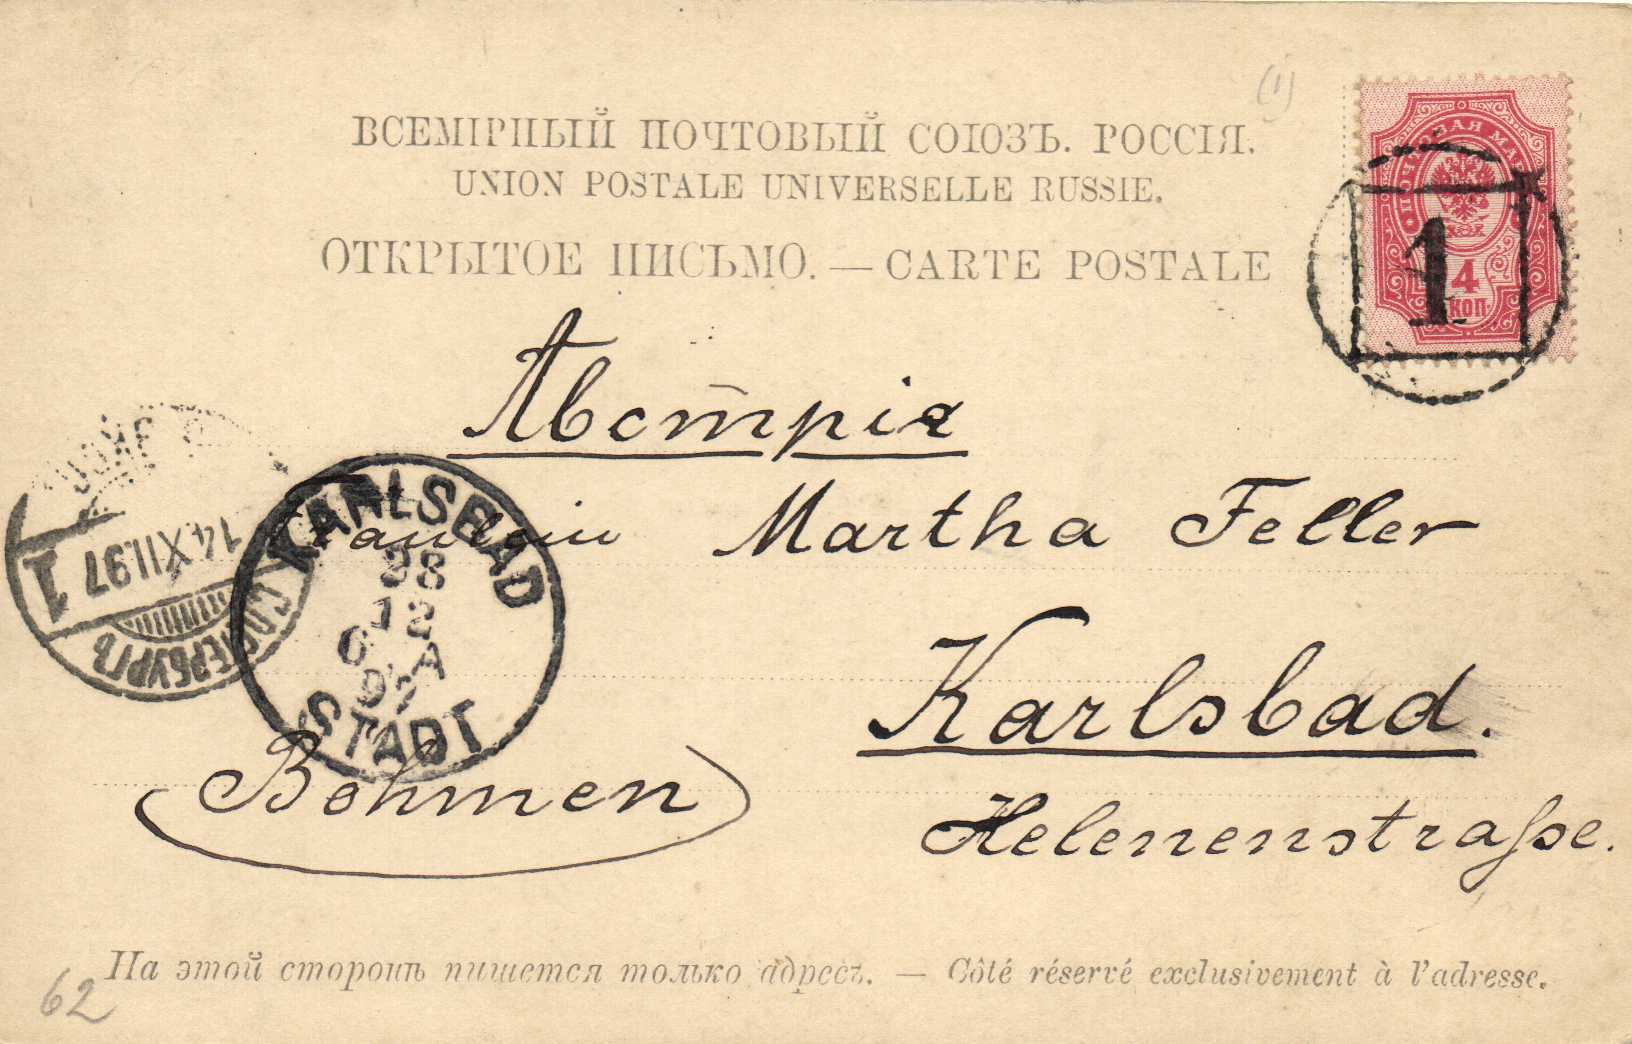 (1)
ВСЕМІРНЫЙ ПОЧТОВЫЙ СОЮЗЪ. РОССІЯ.
UNION POSTALE UNIVERSELLE RUSSIE.
ОТКРЫТОЕ ПИСЬМО. — CARTE POSTALE
ПОЧТОВАЯ МАРКА
4
КОП.
1
Австрія
Fräulein Martha Feller
Karlsbad.
(Böhmen)
Helenenstraße.
С.ПЕТЕРБУРГЪ
14.XII.97
1
KARLSBAD
28
12
6 A
97
STADT
На этой сторонѣ пишется только адресъ. — Côté réservé exclusivement à l'adresse.
62